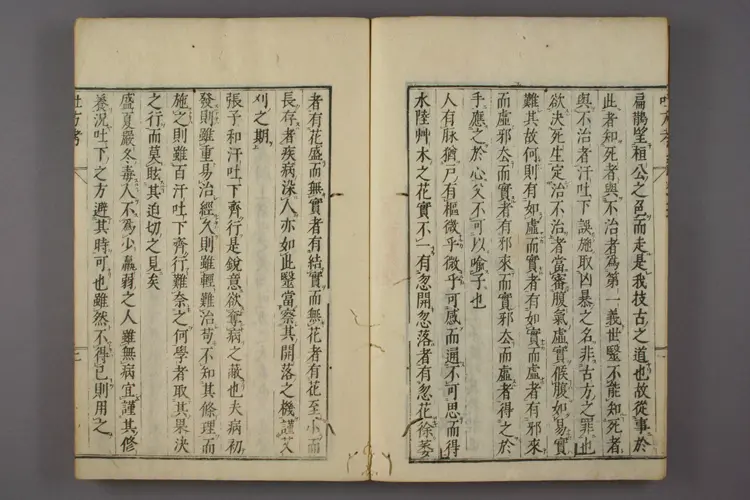 扁鵲望桓公之色而走是我技古之道也故從事於
此者知死者與不治者為第一義世毉不能知死者
與不治者汗吐下誤施取凶暴之名非古方之罪也
欲決死生定治不治者當審腹氣虛實候腹如易實
難其故何則有如虛而實者有如實而虛者有邪來
而虛邪去而實者有邪來而實邪去而虛者得之於
手應之於心父不可以喻子也
人有脉猶戶有樞微乎微乎可感而通不可思而得
水陸艸木之花實不一有忽開忽落者有忽花徐萎
者有花盛而無實者有結實而無花者有花至小而
長存者疾病染人亦如此毉當察其開落之機謹艾
刈之期
張子和汗吐下齊行是銳意欲奪病之蔽也夫病初
發則雖重易治經久則雖輕難治苟不知其條理而
施之則雖百汗吐下齊行難奈之何學者取其果決
之行而莫眩其迫切之見矣
盛夏嚴冬毒入不為少羸弱之人雖無病宜謹其修
養況吐下之方避其時可也雖然不得已則用之
吐方考